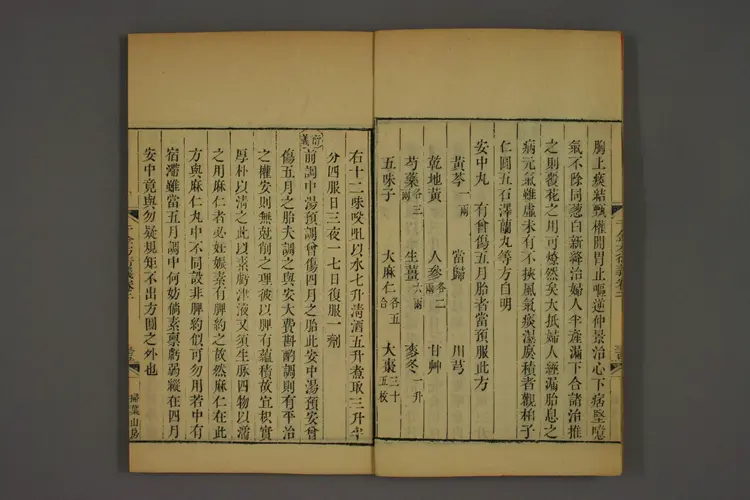 胸上痰結頗權開胃止嘔逆仲景治心下痞堅噫
氣不除同蔥白新絳治婦人半產漏下合諸治推
之則覆花之用可燎然矣大抵婦人經漏胎息之
病元氣雖虛未有不挾風氣痰濕瘀積者觀柏子
仁圓五石澤蘭丸等方自明
安中丸 有曾傷五月胎者當預服此方
黃芩一兩 當歸 川芎
乾地黃 人參各二兩 甘艸
芍藥各三兩 生薑六兩 麥冬一升
五味子 大麻仁各五合 大棗三十五枚
右十二味㕮咀以水七升清酒五升煮取三升半
分四服日三夜一七日復服一劑
衍義 前調中湯預調曾傷四月之胎此安中湯預安曾
傷五月之胎夫調之與安大費斟酌調則有平治
之權安則無尅削之理彼以脾有蘊積故宜枳實
厚朴以清之此以素虧津液又須生脈四物以濡
之用麻仁者必妊娠素有脾約之故然麻仁在此
方與麻仁丸中不同設非脾約似可勿用若中有
宿滯雖當五月調中何妨倘素稟虧弱縱在四月
安中竟與勿疑規矩不出方圓之外也
千金方衍義卷二
掃葉山房